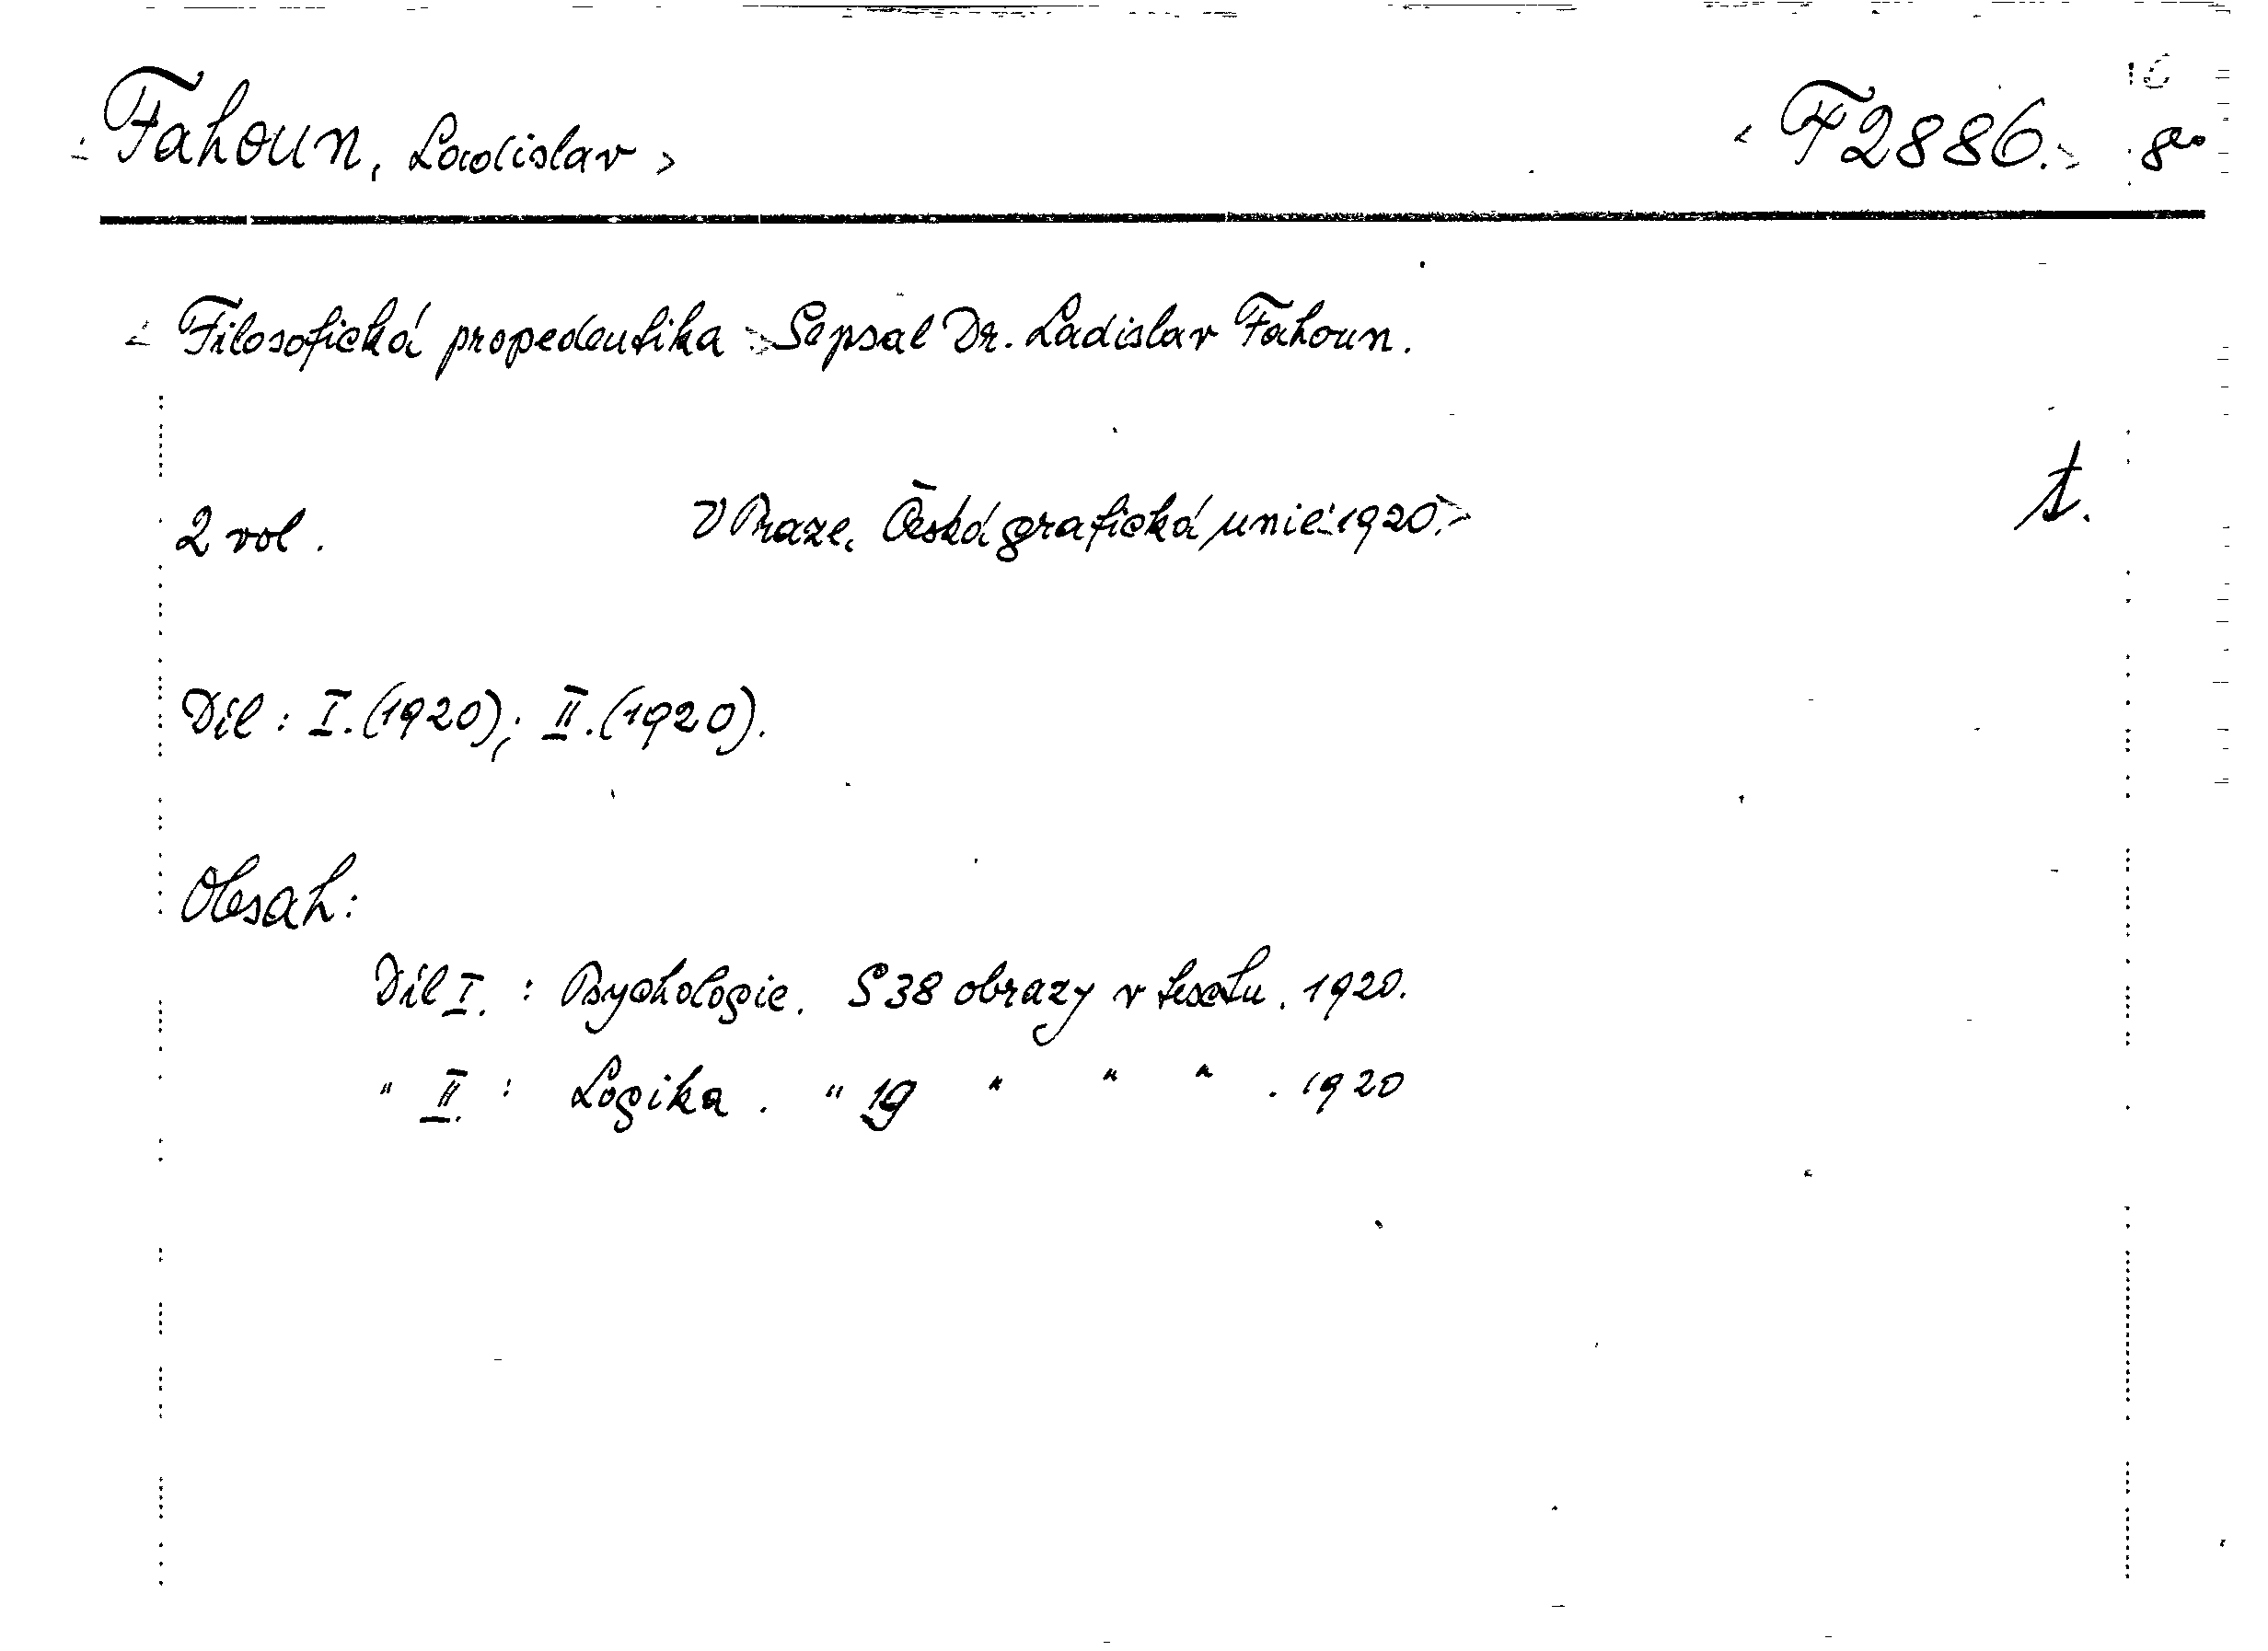 < Fahoun, Ladislav > < F 2886. > 8vo
< Filosofická propedeutika > Sepsal Dr. Ladislav Fahoun.
2 vol. V Praze, Česká grafická unie 1920. >
Díl : I. (1920); II. (1920).
Obsah:
Díl I. : Psychologie. S 38 obrazy v textu. 1920.
" II. : Logika. " 19 " " " . 1920